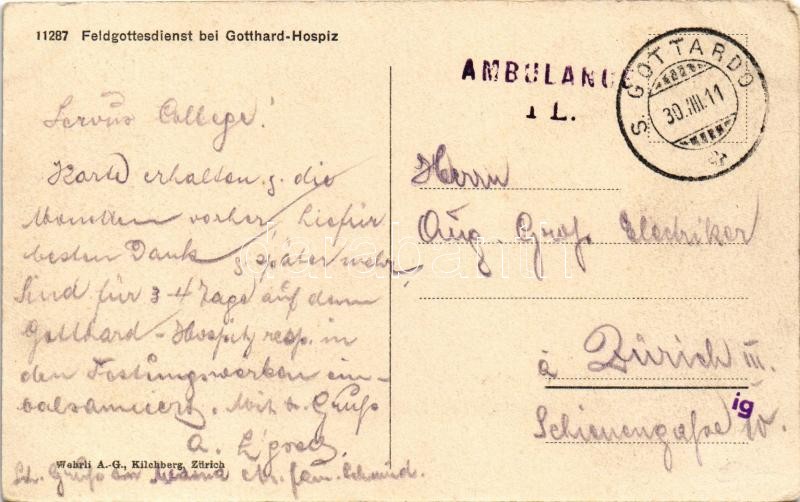 11287 Feldgottesdienst bei Gotthard-Hospiz
AMBULANCE
S. GOTTARDO
30.VIII.11
Servus College!
Karte erhalten, die
vorher, hiefür
besten Dank, später mehr
Sind für 3-4 Tage auf dem
Gotthard-Hospitz resp. in
den Festungswerken ein-
balsamiert. Mit Gruß
A.
Gruß an
Wehrli A.-G., Kilchberg, Zürich
Herrn
Aug. Groß Electriker
à Zürich III.
ig
Schienengaße 10.